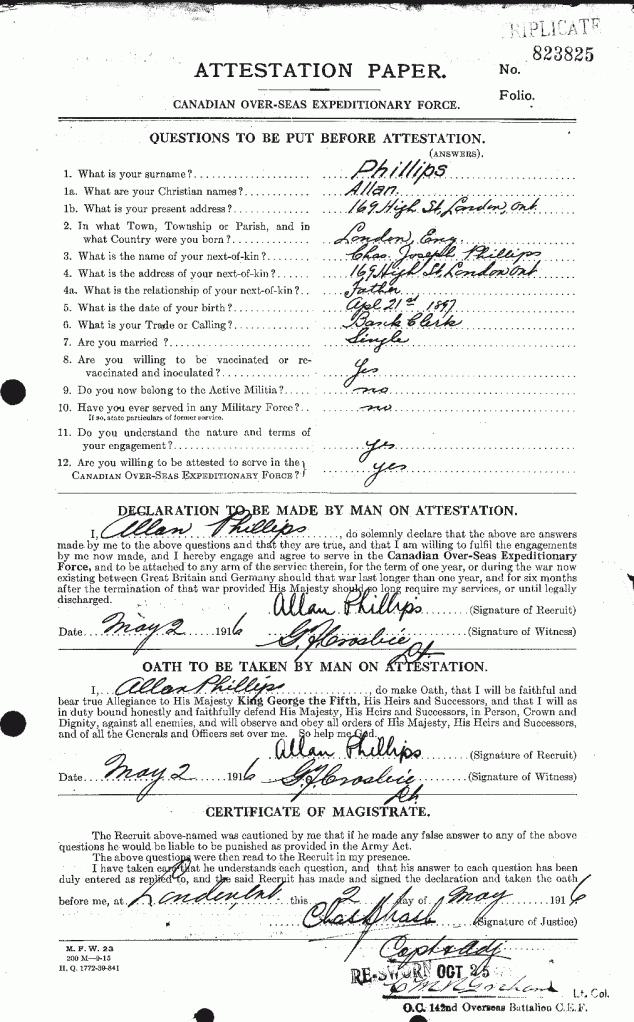 TRIPLICATE
823825
ATTESTATION PAPER.
No.
Folio.
CANADIAN OVER-SEAS EXPEDITIONARY FORCE.
QUESTIONS TO BE PUT BEFORE ATTESTATION.
(ANSWERS).
1. What is your surname? Phillips
1a. What are your Christian names? Allan
1b. What is your present address? 169 High St, London, Ont
2. In what Town, Township or Parish, and in
what Country were you born? London, Eng
3. What is the name of your next-of-kin? Chas. Joseph Phillips
4. What is the address of your next-of-kin? 169 High St, London Ont
4a. What is the relationship of your next-of-kin? Father
5. What is the date of your birth? Apl 21st 1897
6. What is your Trade or Calling? Bank Clerk
7. Are you married ? Single
8. Are you willing to be vaccinated or re-
vaccinated and inoculated? Yes
9. Do you now belong to the Active Militia? no
10. Have you ever served in any Military Force? no
If so, state particulars of former service.
11. Do you understand the nature and terms of
your engagement? yes
12. Are you willing to be attested to serve in the
CANADIAN OVER-SEAS EXPEDITIONARY FORCE? yes
DECLARATION TO BE MADE BY MAN ON ATTESTATION.
I, Allan Phillips, do solemnly declare that the above are answers
made by me to the above questions and that they are true, and that I am willing to fulfil the engagements
by me now made, and I hereby engage and agree to serve in the Canadian Over-Seas Expeditionary
Force, and to be attached to any arm of the service therein, for the term of one year, or during the war now
existing between Great Britain and Germany should that war last longer than one year, and for six months
after the termination of that war provided His Majesty should so long require my services, or until legally
discharged.
Allan Phillips (Signature of Recruit)
Date May 2 1916 G F Crosbie (Signature of Witness)
OATH TO BE TAKEN BY MAN ON ATTESTATION.
I, Allan Phillips, do make Oath, that I will be faithful and
bear true Allegiance to His Majesty King George the Fifth, His Heirs and Successors, and that I will as
in duty bound honestly and faithfully defend His Majesty, His Heirs and Successors, in Person, Crown and
Dignity, against all enemies, and will observe and obey all orders of His Majesty, His Heirs and Successors,
and of all the Generals and Officers set over me. So help me God.
Allan Phillips (Signature of Recruit)
Date May 2 1916 G F Crosbie (Signature of Witness)
CERTIFICATE OF MAGISTRATE.
The Recruit above-named was cautioned by me that if he made any false answer to any of the above
questions he would be liable to be punished as provided in the Army Act.
The above questions were then read to the Recruit in my presence.
I have taken care that he understands each question, and that his answer to each question has been
duly entered as replied to, and the said Recruit has made and signed the declaration and taken the oath
before me, at London Ont this 2 day of May 1916
(Signature of Justice)
M. F. W. 23
200 M—9-15
H. Q. 1772-39-841
Capt & Adj
RE-SWORN OCT 25
Lt. Col.
O.C. 142nd Overseas Battalion C.E.F.